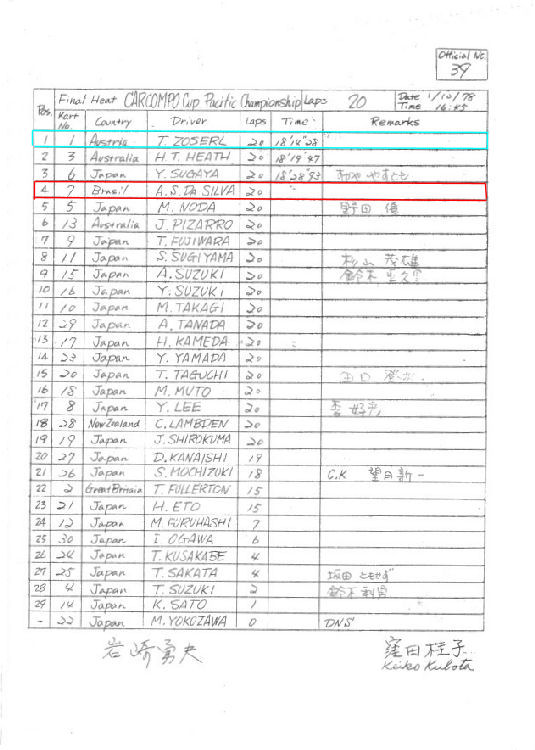 Official No.
39
Final Heat CARCOMPO Cup Pacific Championship Laps 20 Date 1/10/78
Time 16:45
Pos. Kart No. Country Driver Laps Time Remarks
1 1 Austria T. ZOSERL 20 18'14"28
2 3 Australia H.T. HEATH 20 18'19"47
3 6 Japan Y. SUGAYA 20 18'28"93
4 7 Brasil A.S. DA SILVA 20
5 5 Japan M. NODA 20 野田 優
6 13 Australia J. PIZARRO 20
7 9 Japan T. FUJIWARA 20
8 11 Japan S. SUGIYAMA 20 杉山 茂雄
9 15 Japan A. SUZUKI 20 鈴木
10 16 Japan Y. SUZUKI 20
11 10 Japan M. TAKAGI 20
12 29 Japan A. TANADA 20
13 17 Japan H. KAMEDA 20
14 23 Japan Y. YAMADA 20
15 20 Japan T. TAGUCHI 20 田口
16 18 Japan M. MUTO 20
17 8 Japan Y. LEE 20
18 28 New Zealand C. LAMBDEN 20
19 19 Japan J. SHIROKUMA 20
20 27 Japan D. KANAISHI 19
21 26 Japan S. MOCHIZUKI 18 O.K 望月新一
22 2 Great Britain T. FULLERTON 15
23 21 Japan H. ETO 15
24 12 Japan M. GURUHASHI 7
25 30 Japan I OGAWA 6
26 24 Japan T. KUSAKABE 4
27 25 Japan T. SAKATA 4 坂田
28 4 Japan T. SUZUKI 2 鈴木利男
29 14 Japan K. SATO 1
- 22 Japan M. YOKOZAWA 0 DNS
岩崎勇夫 窪田桂子
Keiko Kubota